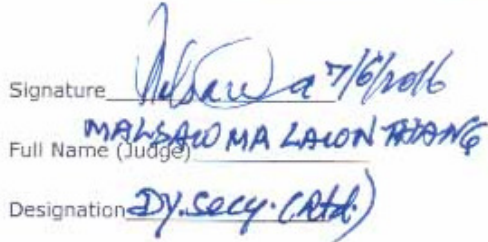 Signature Malsawma 7/6/2016
Full Name (Judge) MALSAWMA LAWNTHANG
Designation Dy. Secy. (Rtd.)